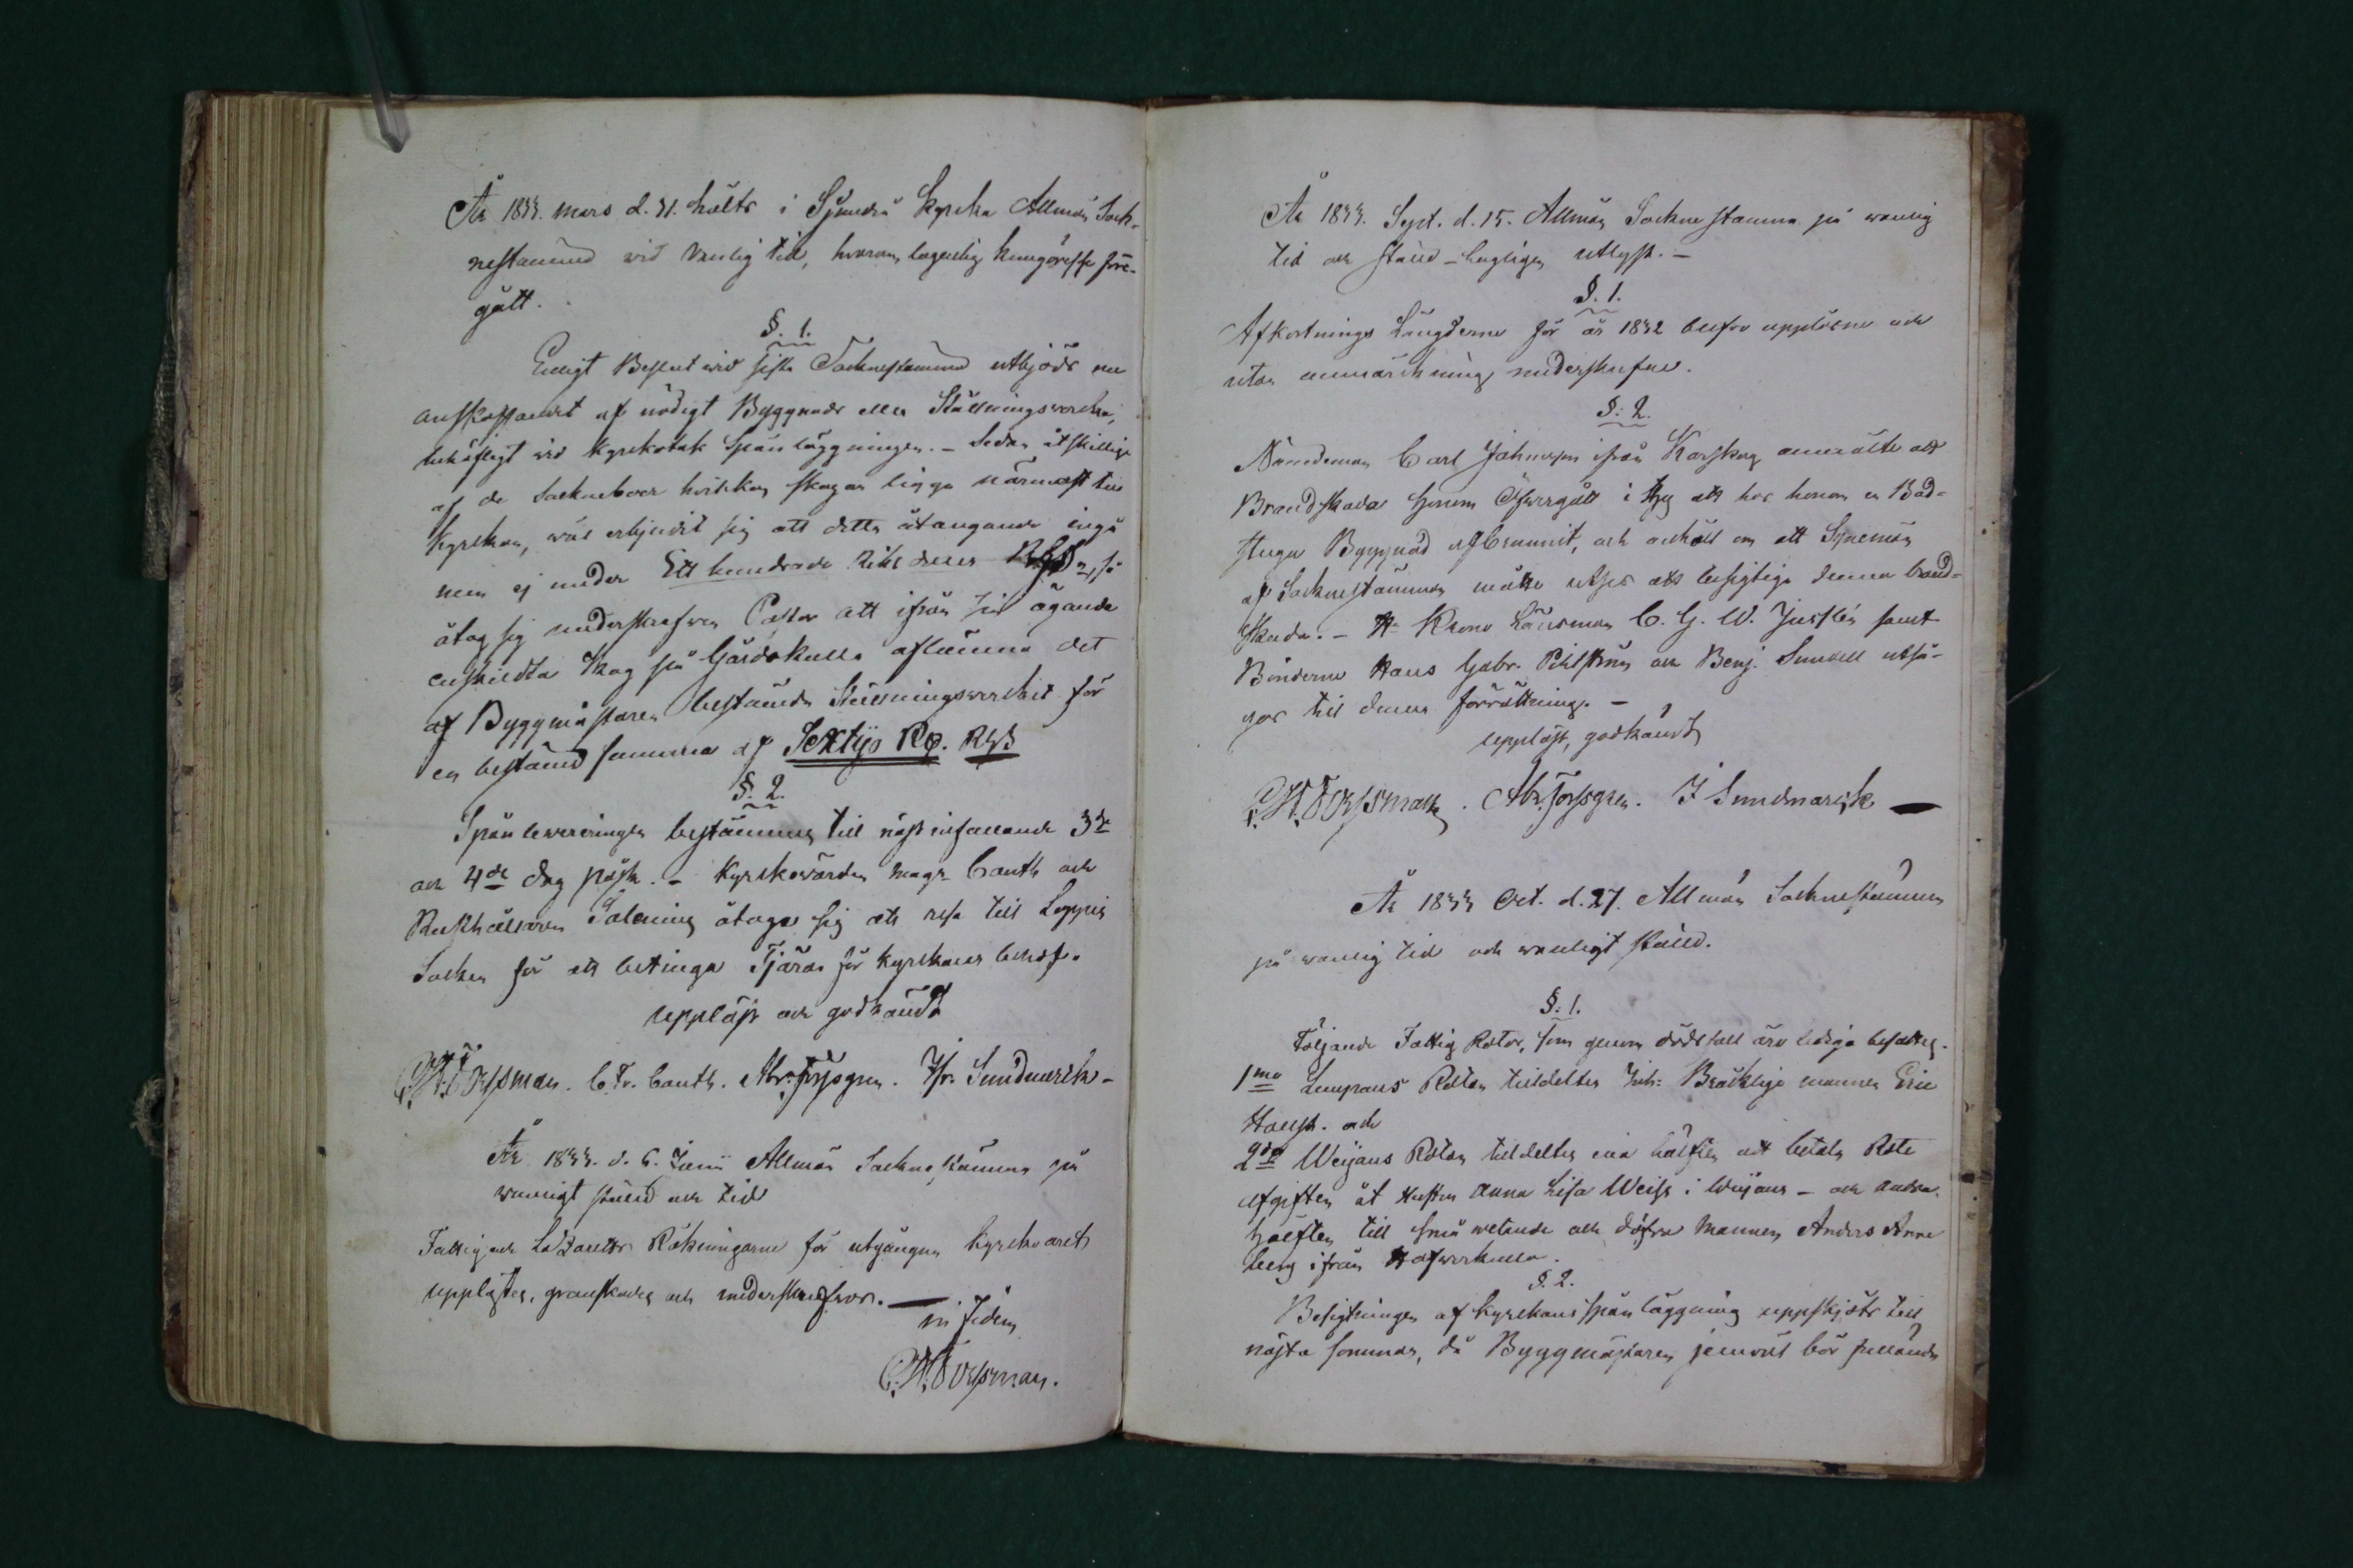 År 1833. mars d. 31. hölts i Sjundeå Kyrcka Allmän Sock-
nestämma vid vanlig tid, hvarom lagenlig kungörelse före-
gått.
§. 1.
Enligt Beslut wid sista Socknestämma utbjöds nu
anskaffandet af nödigt Byggnads eller Ställningsvercke,
behöfligt wid Kyrkotak Spånläggningen. – Sedan åtskillige
af de Sockneboer hvilkas skogar ligga närmast till
Kyrkan, wäl erbjudit sig att detta åtagande ingå
men ej under Ett hundrade Riksdaler RGS, så
åtog sig underskrefwen Pastor att ifrån sin ägande
enskildta skog på Gårdskulla aflämna det
af Byggmästaren bestämda Ställningswercket för
en bestämd summa af Sextijo R. RGS
§. 2.
Spånlevereringen bestämmes till näst infallande 3de
och 4de dag påsk. – Kyrkowärden Mag. Canth och
Rusthållaren Salening åtaga sig att resa till Loppis
Socken för att betinga Tjäran för kyrkans behof.
Uppläst och godkändt
C. H. Forssman. C. Fr. Canth. Abr. Forssgren. Is. Sundmarck –
År 1833. d. 6. Junii Allmän Sockne stämma på
wanligt ställe och tid
Fattig och Lazaretts Räkningarne för utgångna kyrkoåret
upplästes, granskades och underskrefwos. –
in fidem
C. H. Forssman.
År 1833. Sept. d. 15. Allmän Sockne stämma på wanlig
tid och ställe – lagligen utlyst. –
§. 1.
Afkortnings Längderne för år 1832 blefvo upplästne och
utan anmärckning underskrefne.
§. 2.
Nämdeman Carl Johansson ifrån Karskog anmälte att
Brandskada honom öfvergått i ty att hos honom en Bad-
stuga Byggnad afbrunnit, och anhöll om att Synemän
af Socknestämman måtte utses att besigtiga denna brand-
skada. – H. Krono Länsman C. G. W. Juslén samt
Bönderne Hans Gabr. Pihlström och Benj. Sundell utså-
gos till denna förrättning. –
Uppläst, godkändt
C. H. Forssman. Abr. Forssgren. I Sundmarck –
År 1833 Oct. d. 27. Allmän Socknestämma
på wanlig tid och wanligt ställe.
§. 1.
Följande Fattig Rotor, som genom dödsfall äro lediga besattes.
1mo Lempans Rotan tilldeltes Inh. Bräcklige mannen Eric
Hansson. och
2do Weijans Rotan tilldeltes ena hälften att betala Rote
afgiften åt Hustru Anna Lisa Weiss i Weijans – och andra
hälften till små wetande och döfva Mannen Anders Anne
berg ifrån Hafwerkulla.
§. 2.
Besigtningen af Kyrkans spånläggning uppskjöts till
nästa sommar, då Byggmästaren jemväl bör fullända